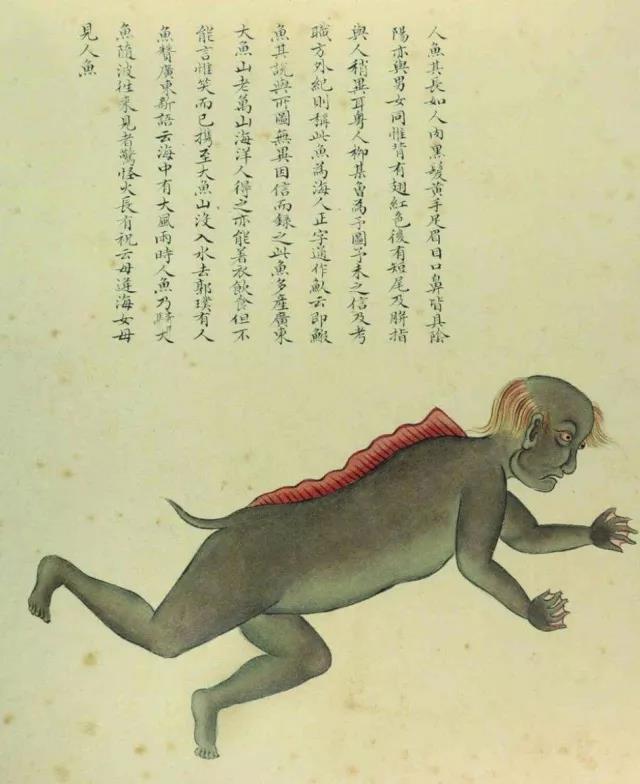 人魚其長如人肉黑髮黃手足眉目口鼻皆具陰
陽亦與男女同惟背有翅紅色後有短尾及胼指
與人稍異耳粵人柳某曾為予圖予未之信及考
職方外紀則稱此魚為海人正字通作魜云即
魚其說與所圖無異因信而錄之此魚多產廣東
大魚山老萬山海洋人得之亦能著衣飲食但不
能言惟笑而已攜至大魚山沒入水去郭璞有人
魚贊廣東新語云海中有大風雨時人魚乃騎大
魚隨波往來見者驚怪火長有祝云毋逢海女毋
見人魚